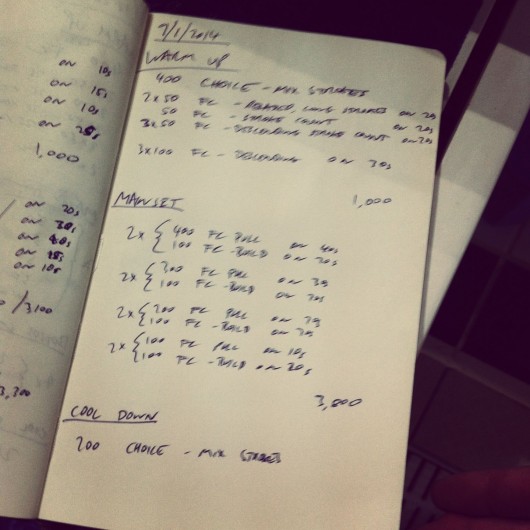 on 10s
on 15s
on 10s
on 20s
1,000
on 20s
on 30s
on 40s
on 20s
on 10s
/3,100
3,300
7/1/2014
WARM UP
400 CHOICE - MIX STROKES
2x50 FC - RELAXED, LONG STROKES on 20s
50 FC - STROKE COUNT on 20s
3x50 FC - DESCENDING STROKE COUNT on 20s
3x100 FC - DESCENDING on 30s
1,000
MAINSET
2x { 400 FC PULL on 40s
100 FC - BUILD on 20s
2x { 300 FC PULL on 30s
100 FC - BUILD on 20s
2x { 200 FC PULL on 20s
100 FC - BUILD on 20s
2x { 100 FC PULL on 10s
100 FC - BUILD on 20s
3,800
COOL DOWN
200 CHOICE - MIX STROKES